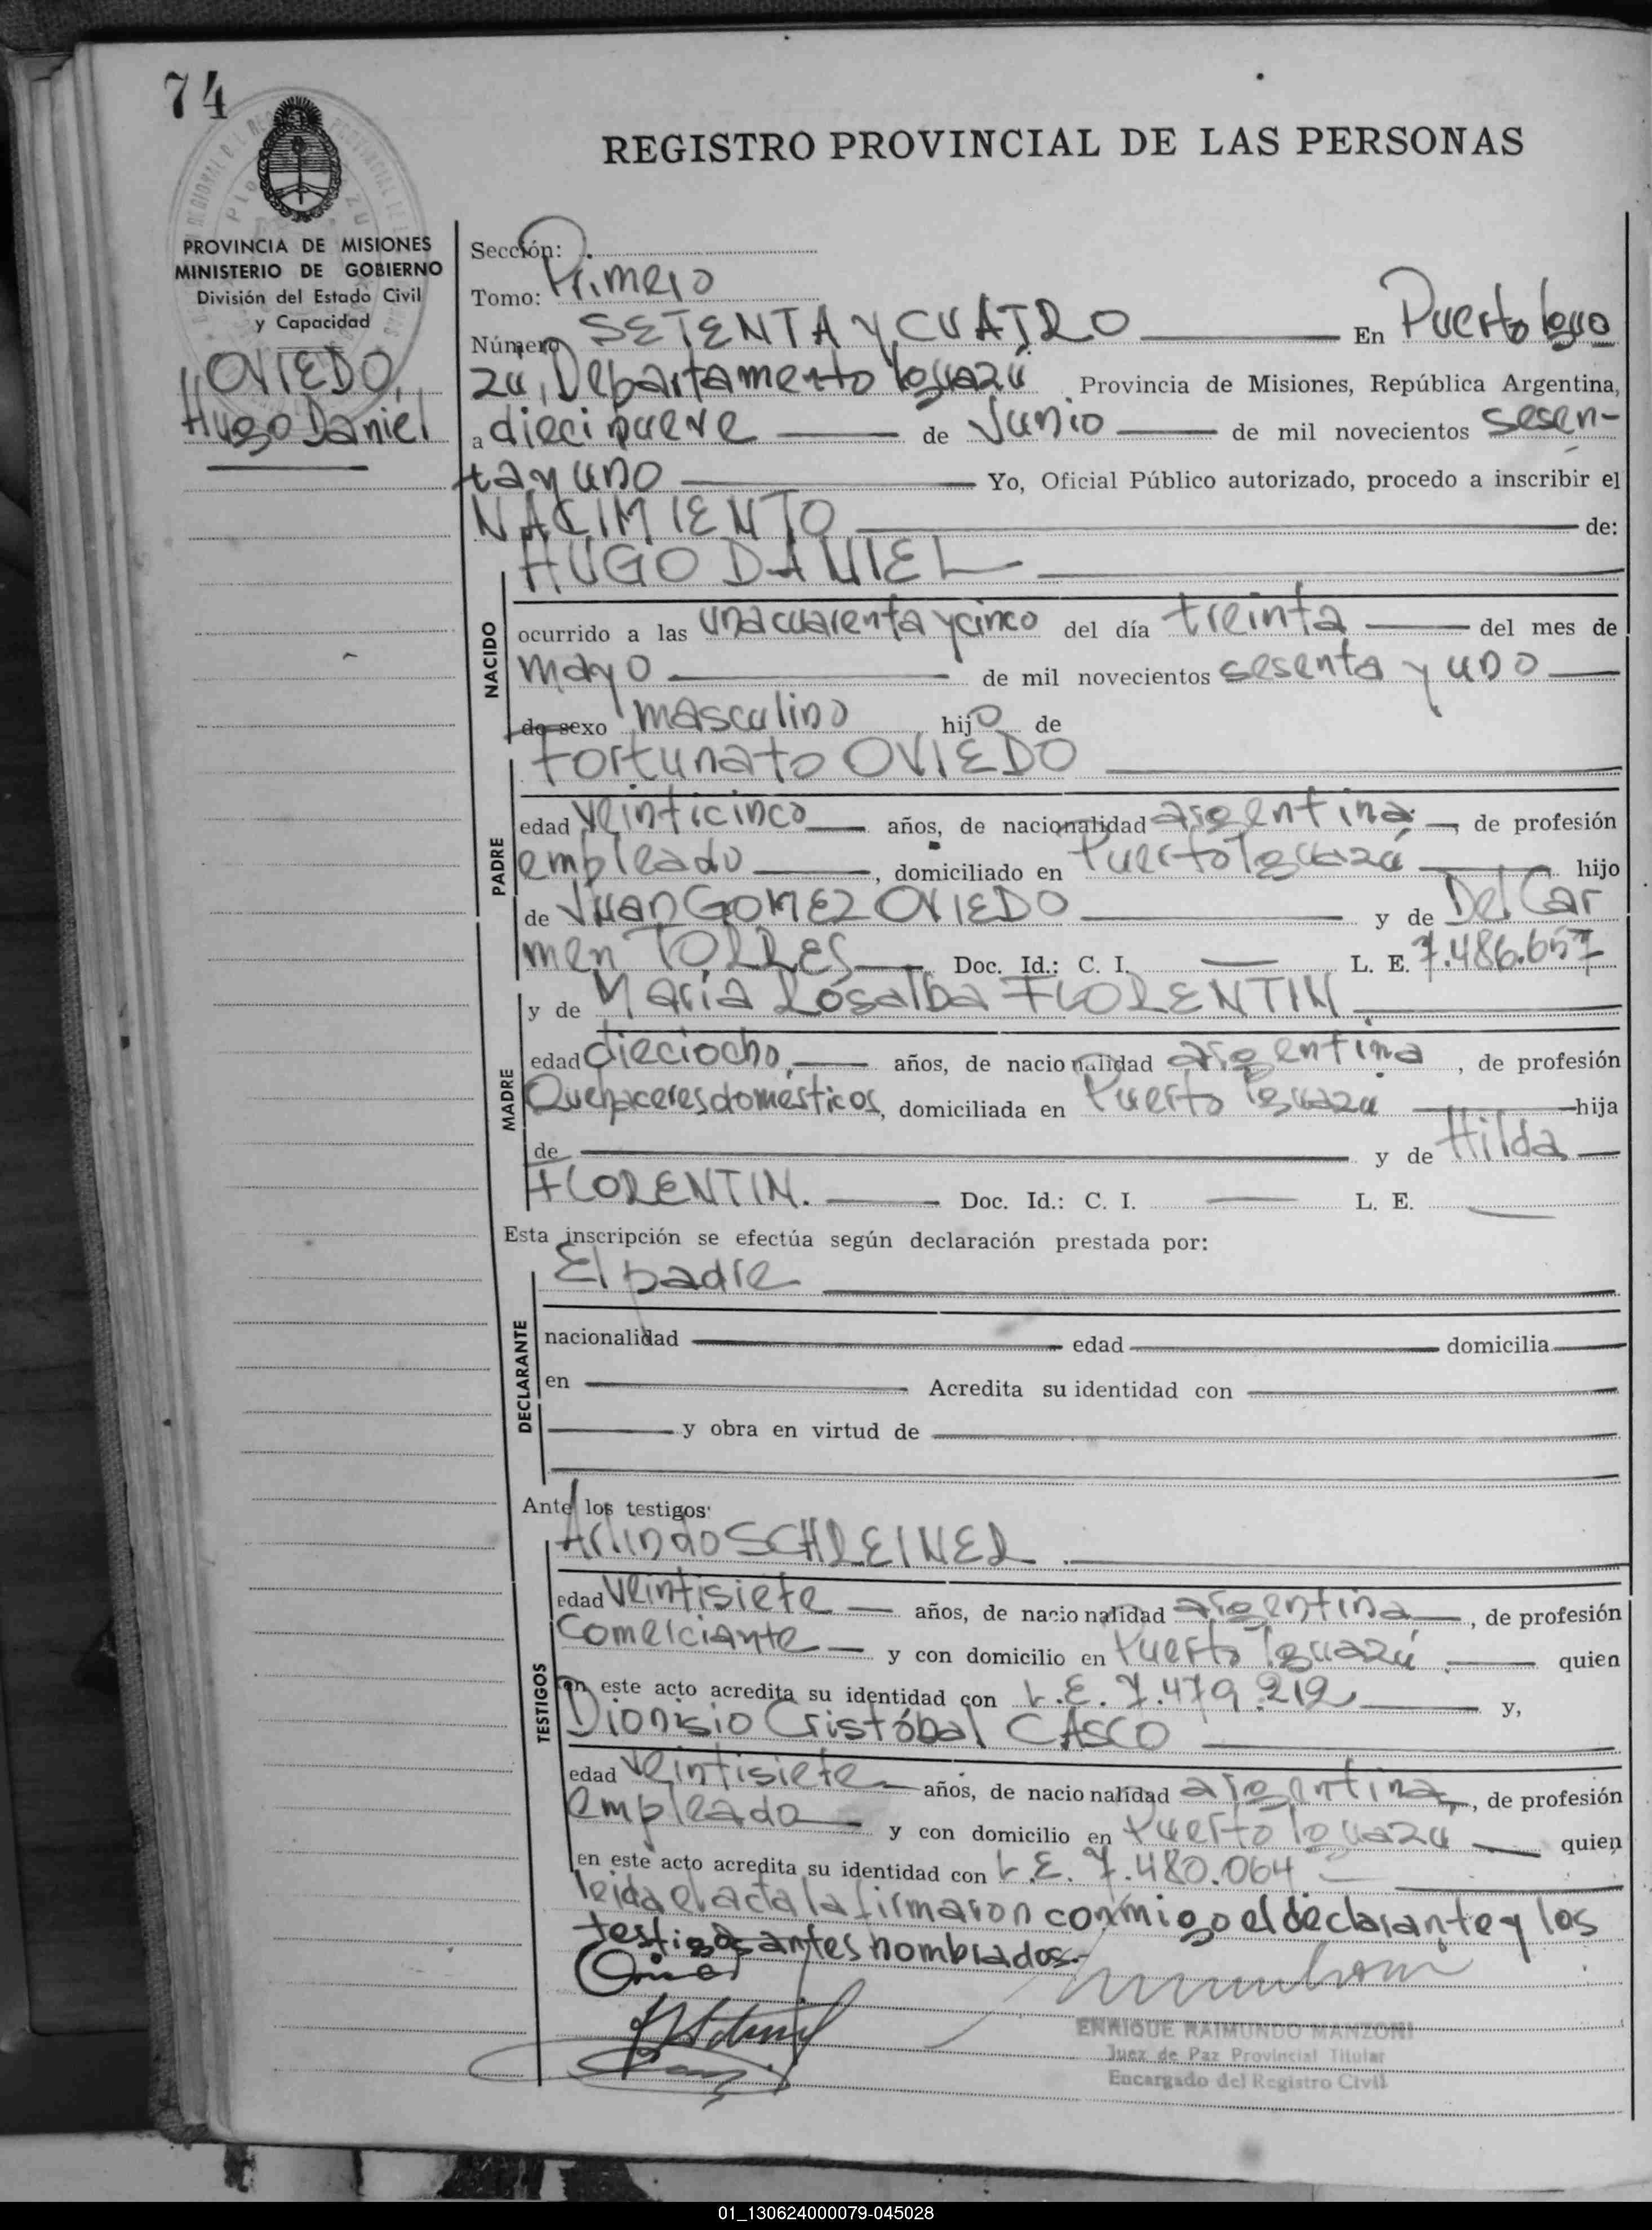 74
REGISTRO PROVINCIAL DE LAS PERSONAS
PROVINCIA DE MISIONES
MINISTERIO DE GOBIERNO
División del Estado Civil
y Capacidad
OVIEDO,
Hugo Daniel
Sección:
Tomo: Primero
Número SETENTA Y CUATRO En Puerto Igua
zú, Departamento Iguazú Provincia de Misiones, República Argentina,
a diecinueve de Junio de mil novecientos sesen-
ta y uno Yo, Oficial Público autorizado, procedo a inscribir el
NACIMIENTO de:
HUGO DANIEL
NACIDO
ocurrido a las una cuarenta y cinco del día treinta del mes de
mayo de mil novecientos sesenta y uno
de sexo masculino hijo de
Fortunato OVIEDO
PADRE
edad veinticinco años, de nacionalidad argentina, de profesión
empleado, domiciliado en Puerto Iguazú hijo
de Juan GOMEZ OVIEDO y de Del Car
men TORRES Doc. Id.: C. I. L. E. 7.486.657
y de María Rosalba FLORENTIN
MADRE
edad dieciocho, años, de nacionalidad argentina, de profesión
Quehaceres domésticos, domiciliada en Puerto Iguazú hija
de y de Hilda
FLORENTIN. Doc. Id.: C. I. L. E.
Esta inscripción se efectúa según declaración prestada por:
El padre
DECLARANTE
nacionalidad edad domicilia
en Acredita su identidad con
y obra en virtud de
Ante los testigos:
Arlindo SCHREINER
TESTIGOS
edad veintisiete años, de nacionalidad argentina, de profesión
Comerciante y con domicilio en Puerto Iguazú quien
en este acto acredita su identidad con L.E. 7.479.212 y,
Dionisio Cristóbal CASCO
edad veintisiete años, de nacionalidad argentina, de profesión
empleado y con domicilio en Puerto Iguazú quien
en este acto acredita su identidad con L.E. 7.480.064
leida el acta la firmaron conmigo el declarante y los
testigos antes nombrados.-
ENRIQUE RAIMUNDO MANZONI
Juez de Paz Provincial Titular
Encargado del Registro Civil
01_130624000079-045028